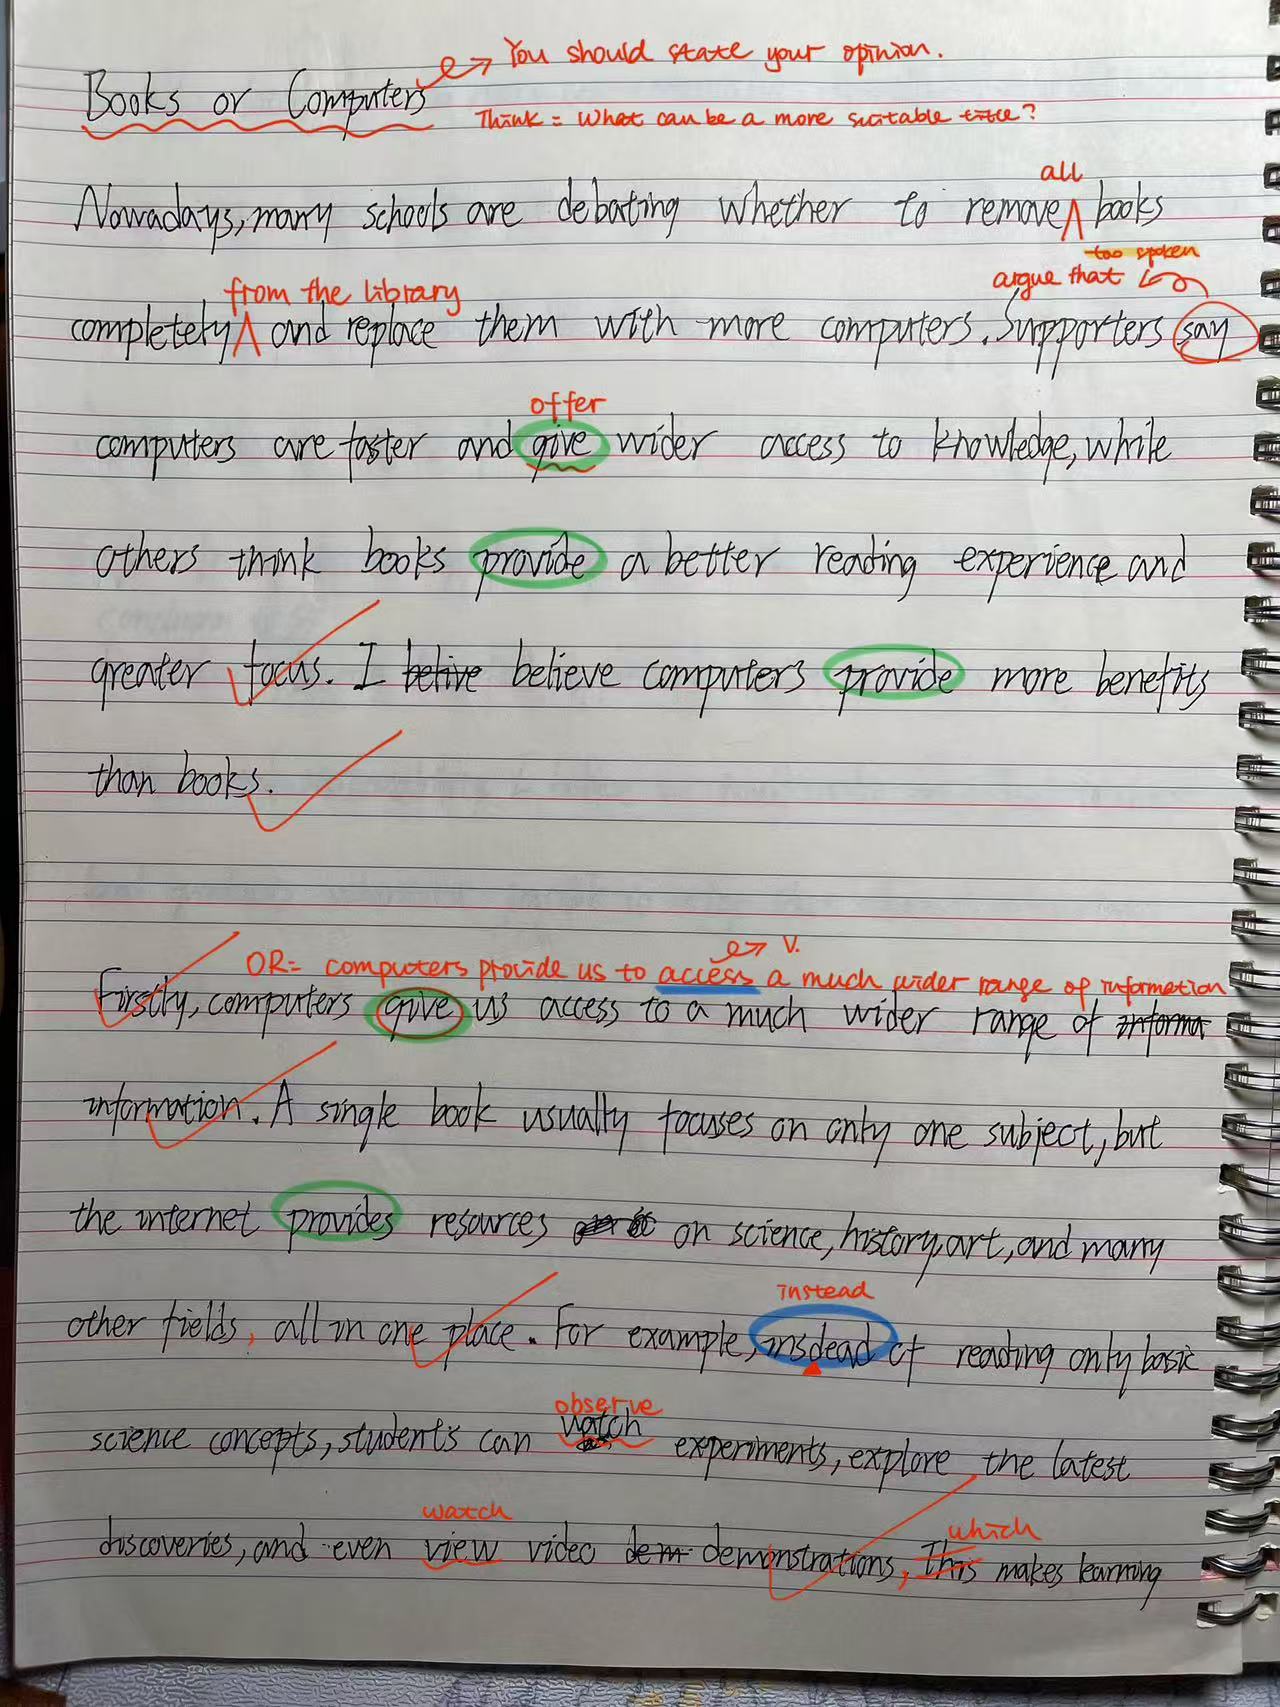 You should state your opinion.
Books or Computers
Think = What can be a more suitable title?
all
Nowadays, many schools are debating whether to remove books
too spoken
from the library
argue that
completely and replace them with more computers. Supporters say
offer
computers are faster and give wider access to knowledge, while
others think books provide a better reading experience and
greater focus. I belive believe computers provide more benefits
than books.
V.
OR= computers provide us to access a much wider range of information
Firstly, computers give us access to a much wider range of informa
information. A single book usually focuses on only one subject, but
the internet provides resources on science, history, art, and many
instead
other fields, all in one place. For example, insdead of reading only basic
observe
science concepts, students can watch experiments, explore the latest
watch
which
discoveries, and even view video dem demonstrations, This makes learning